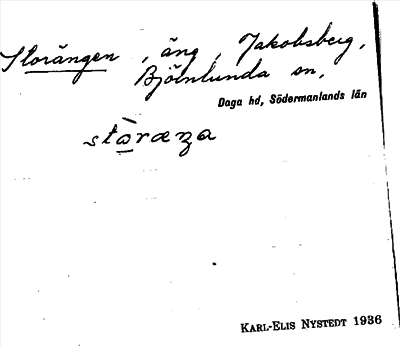 Storängen, äng, Jakobsberg,
Björnlunda sn,
Daga hd, Södermanlands län
stàræŋa
KARL-ELIS NYSTEDT 1936